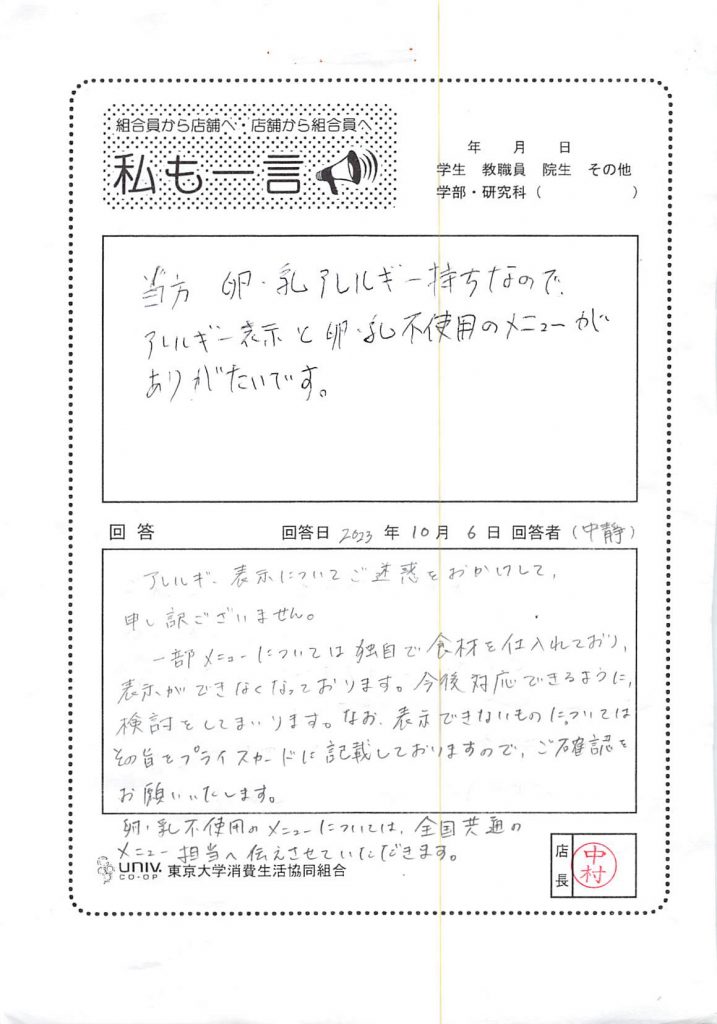 組合員から店舗へ・店舗から組合員へ
私も一言
年 月 日
学生 教職員 院生 その他
学部・研究科（ ）
当方 卵・乳アレルギー持ちなので、
アレルギー表示と卵・乳不使用のメニューが
ありがたいです。
回答 回答日 2023 年 10 月 6 日 回答者（中静）
アレルギー表示についてご迷惑をおかけして、
申し訳ございません。
一部メニューについては独自で食材を仕入れており、
表示ができなくなっております。今後対応できるように、
検討をしてまいります。なお、表示できないものについては
その旨をプライスカードに記載しておりますので、ご確認を
お願いいたします。
卵・乳不使用のメニューについては、全国共通の
メニュー担当へ伝えさせていただきます。
UNIV. CO-OP 東京大学消費生活協同組合
店長
中村